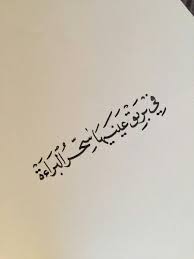 في بريق عينيها سحر البراءة